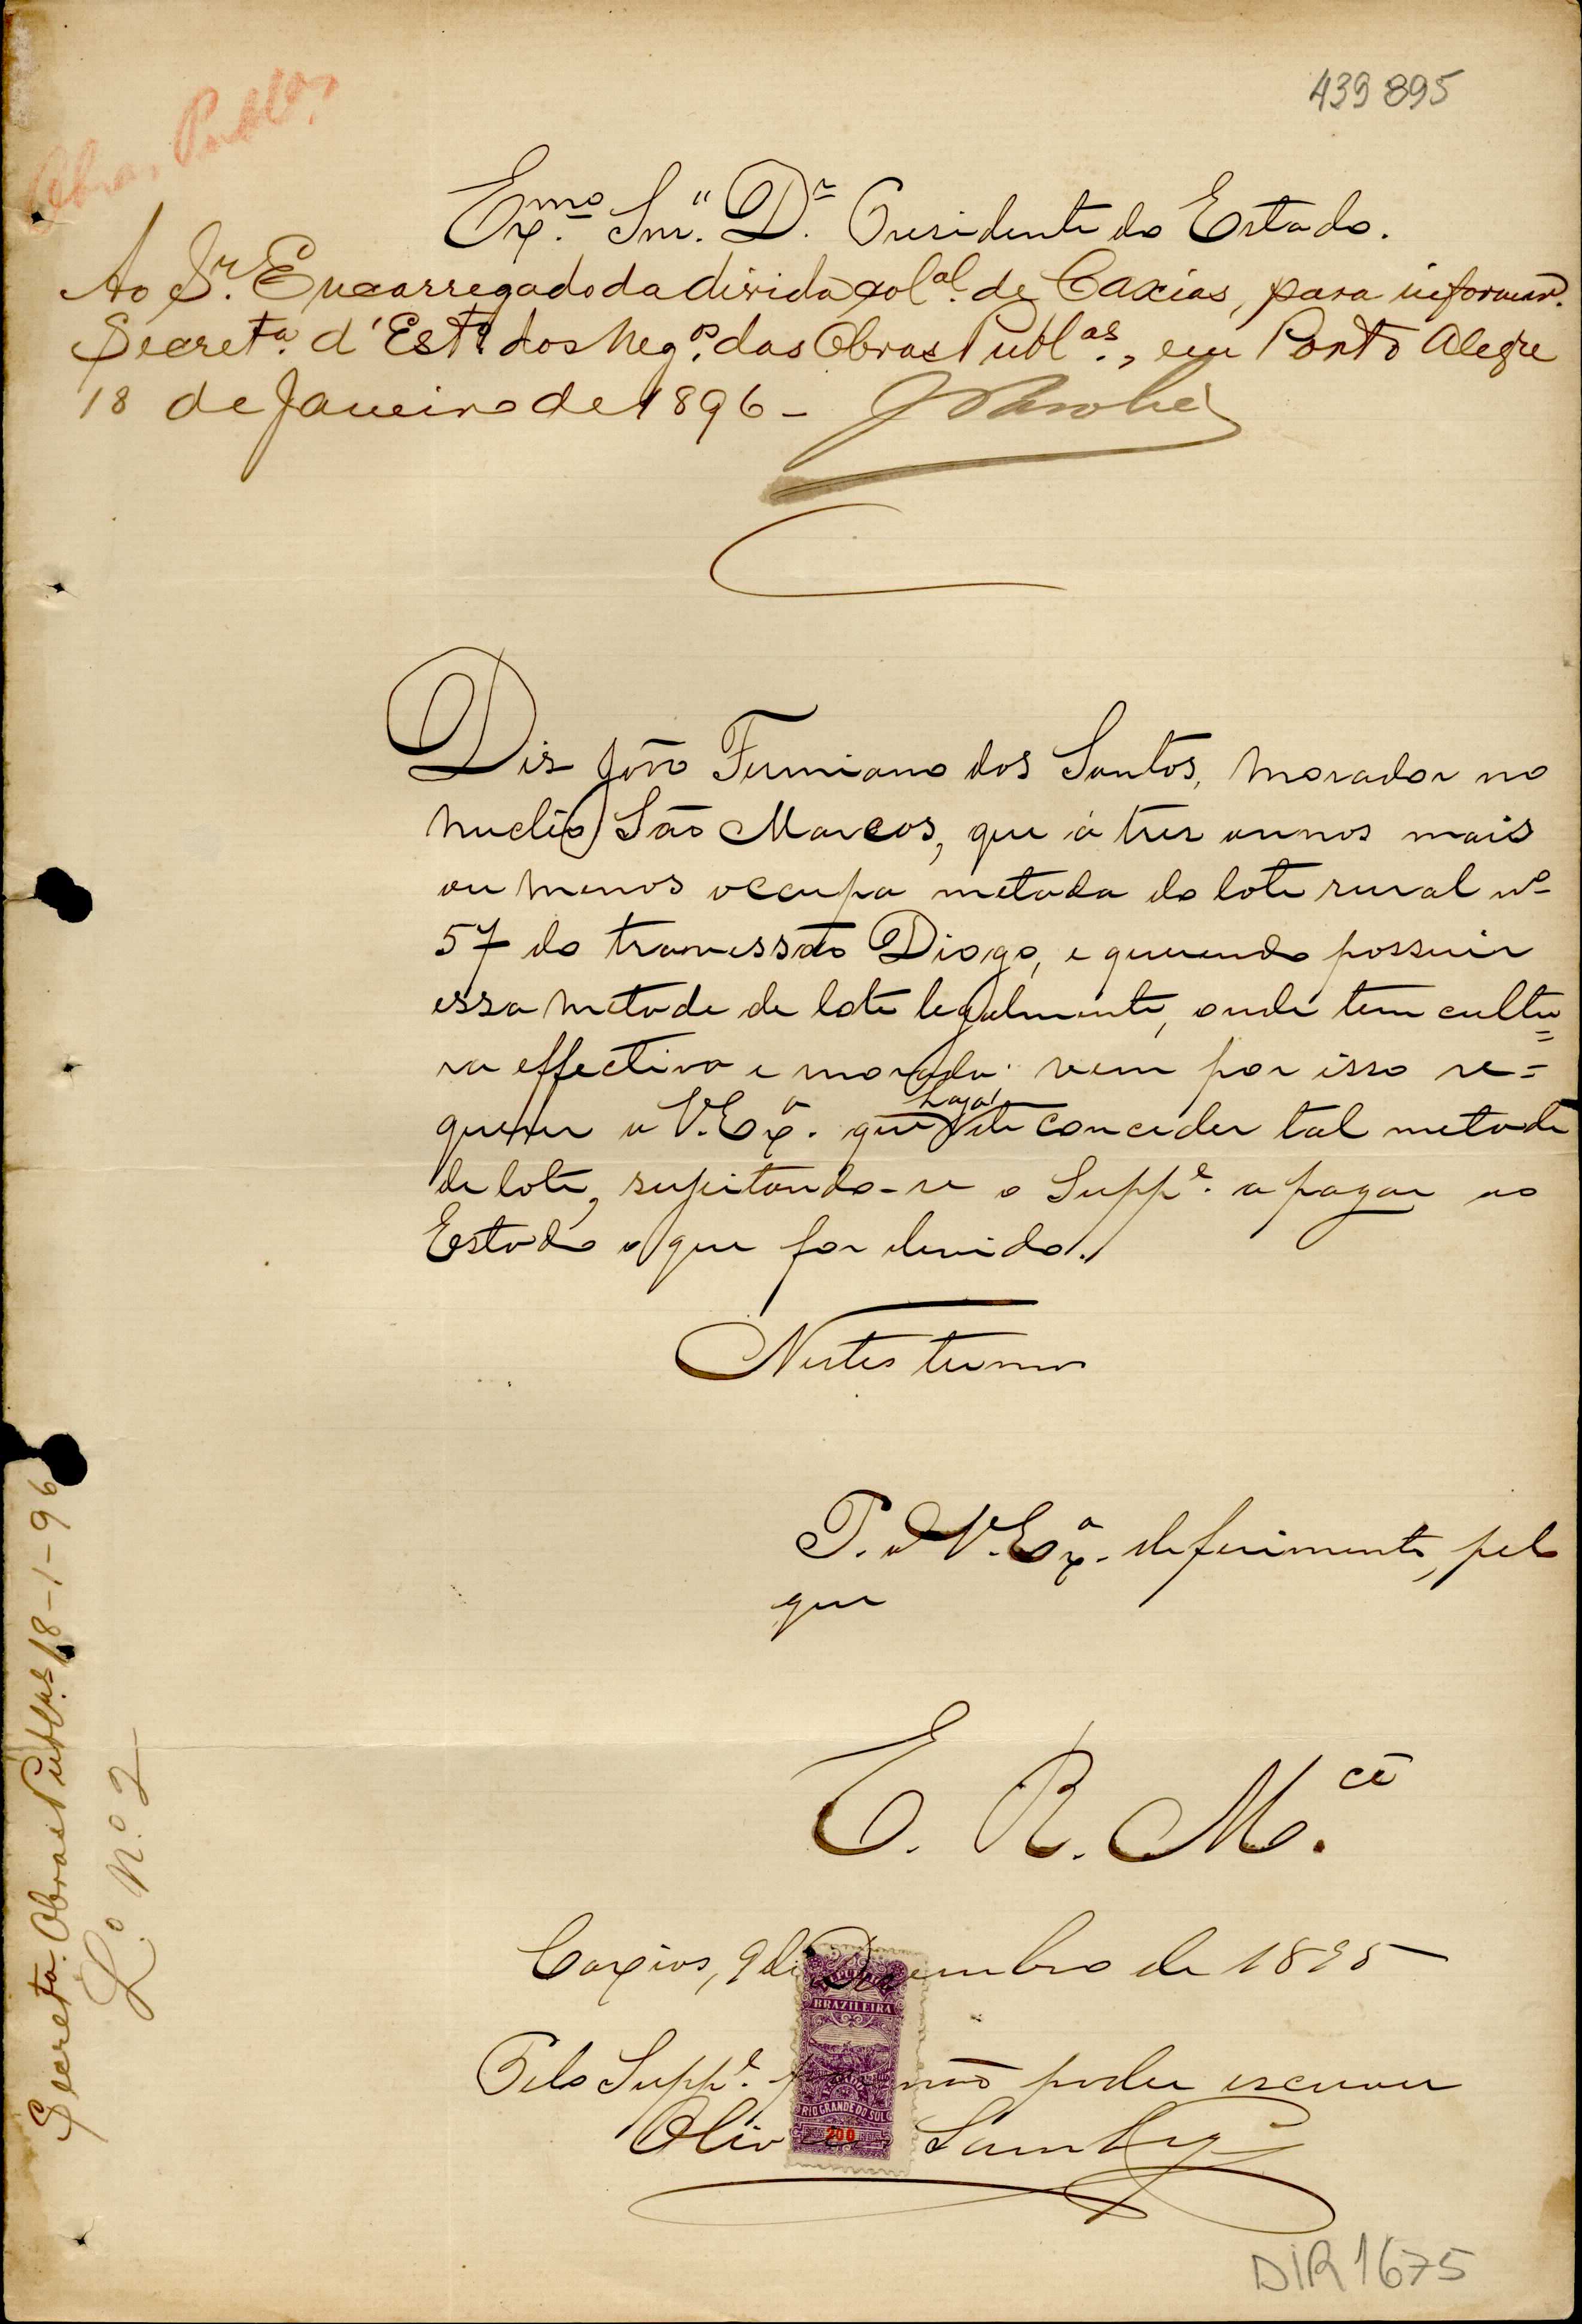 439 895
Obras Publas
Exmo. Snr. Dr. Presidente do Estado.
Ao Sr. Encarregado da divida colal. de Caxias, para informar.
Secreta. d'Esto. dos Negos. das Obras Publas., em Porto Alegre
18 de Janeiro de 1896 -
Diz João Firmiano dos Santos, morador no
nucleo São Marcos, que á tres annos mais
ou menos occupa metade do lote rural nº
57 do travessão Diogo, e querendo possuir
essa metade de lote legalmente, onde tem cultu=
ra effectiva e morada: vem por isso re=
querer a V. Exa. que haja de conceder tal metade
de lote, sugeitando-se o Suppe. a pagar ao
Estado o que for devido.
Nestes termos
P. a V. Exa. deferimento, pelo
que
E. R. Mce.
Caxias, 9 de Dezembro de 1895
BRAZILEIRA
Pelo Suppe. por não poder escrever
RIO GRANDE DO SUL
200
DIR 1675
Secreta. Obras Publas. 18-1-96
Lo. No. 2